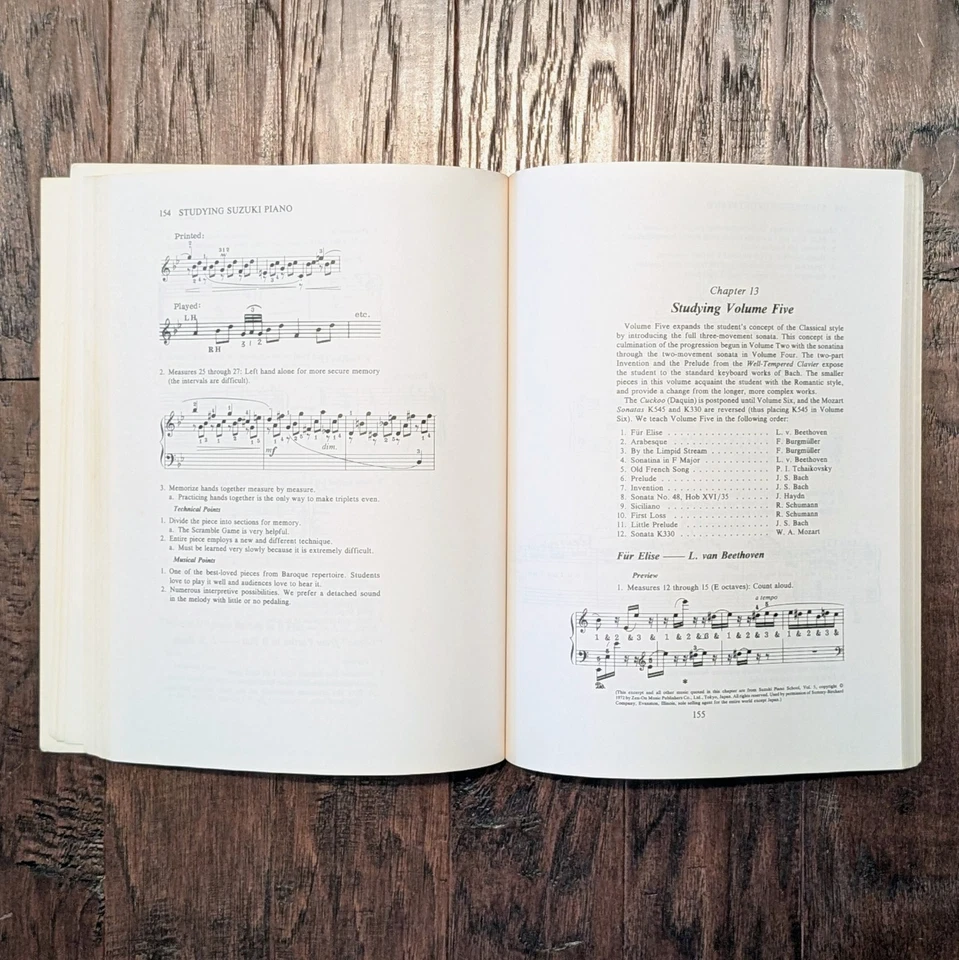 154 STUDYING SUZUKI PIANO
Printed:
Played:
LH
etc.
3
RH
3 1 2
2. Measures 25 through 27: Left hand alone for more secure memory
(the intervals are difficult).
mf
dim.
3. Memorize hands together measure by measure.
a. Practicing hands together is the only way to make triplets even.
Technical Points
1. Divide the piece into sections for memory.
a. The Scramble Game is very helpful.
2. Entire piece employs a new and different technique.
a. Must be learned very slowly because it is extremely difficult.
Musical Points
1. One of the best-loved pieces from Baroque repertoire. Students
love to play it well and audiences love to hear it.
2. Numerous interpretive possibilities. We prefer a detached sound
in the melody with little or no pedaling.
Chapter 13
Studying Volume Five
Volume Five expands the student's concept of the Classical style
by introducing the full three-movement sonata. This concept is the
culmination of the progression begun in Volume Two with the sonatina
through the two-movement sonata in Volume Four. The two-part
Invention and the Prelude from the Well-Tempered Clavier expose
the student to the standard keyboard works of Bach. The smaller
pieces in this volume acquaint the student with the Romantic style,
and provide a change from the longer, more complex works.
The Cuckoo (Daquin) is postponed until Volume Six, and the Mozart
Sonatas K545 and K330 are reversed (thus placing K545 in Volume
Six). We teach Volume Five in the following order:
1. Für Elise . . . . . . . . . . . . . . . . . L. v. Beethoven
2. Arabesque . . . . . . . . . . . . . . . . . F. Burgmüller
3. By the Limpid Stream . . . . . . . . . . . F. Burgmüller
4. Sonatina in F Major . . . . . . . . . . . . L. v. Beethoven
5. Old French Song . . . . . . . . . . . . . P. I. Tchaikovsky
6. Prelude . . . . . . . . . . . . . . . . . . J. S. Bach
7. Invention . . . . . . . . . . . . . . . . . J. S. Bach
8. Sonata No. 48, Hob XVI/35 . . . . . . J. Haydn
9. Siciliano . . . . . . . . . . . . . . . . . R. Schumann
10. First Loss . . . . . . . . . . . . . . . . R. Schumann
11. Little Prelude . . . . . . . . . . . . . . J. S. Bach
12. Sonata K330 . . . . . . . . . . . . . . . W. A. Mozart
Für Elise —— L. van Beethoven
Preview
1. Measures 12 through 15 (E octaves): Count aloud.
a tempo
1 & 2 & 3 & 1 & 2 & 3 & 1 & 2 & 3 & 1 & 2 & 3 &
(This excerpt and all other music quoted in this chapter are from Suzuki Piano School, Vol. 5, copyright ©
1973 by Zen-On Music Publishers Co., Ltd., Tokyo, Japan. All rights reserved. Used by permission of Summy-Birchard
Company, Evanston, Illinois, sole selling agent for the entire world except Japan.)
155